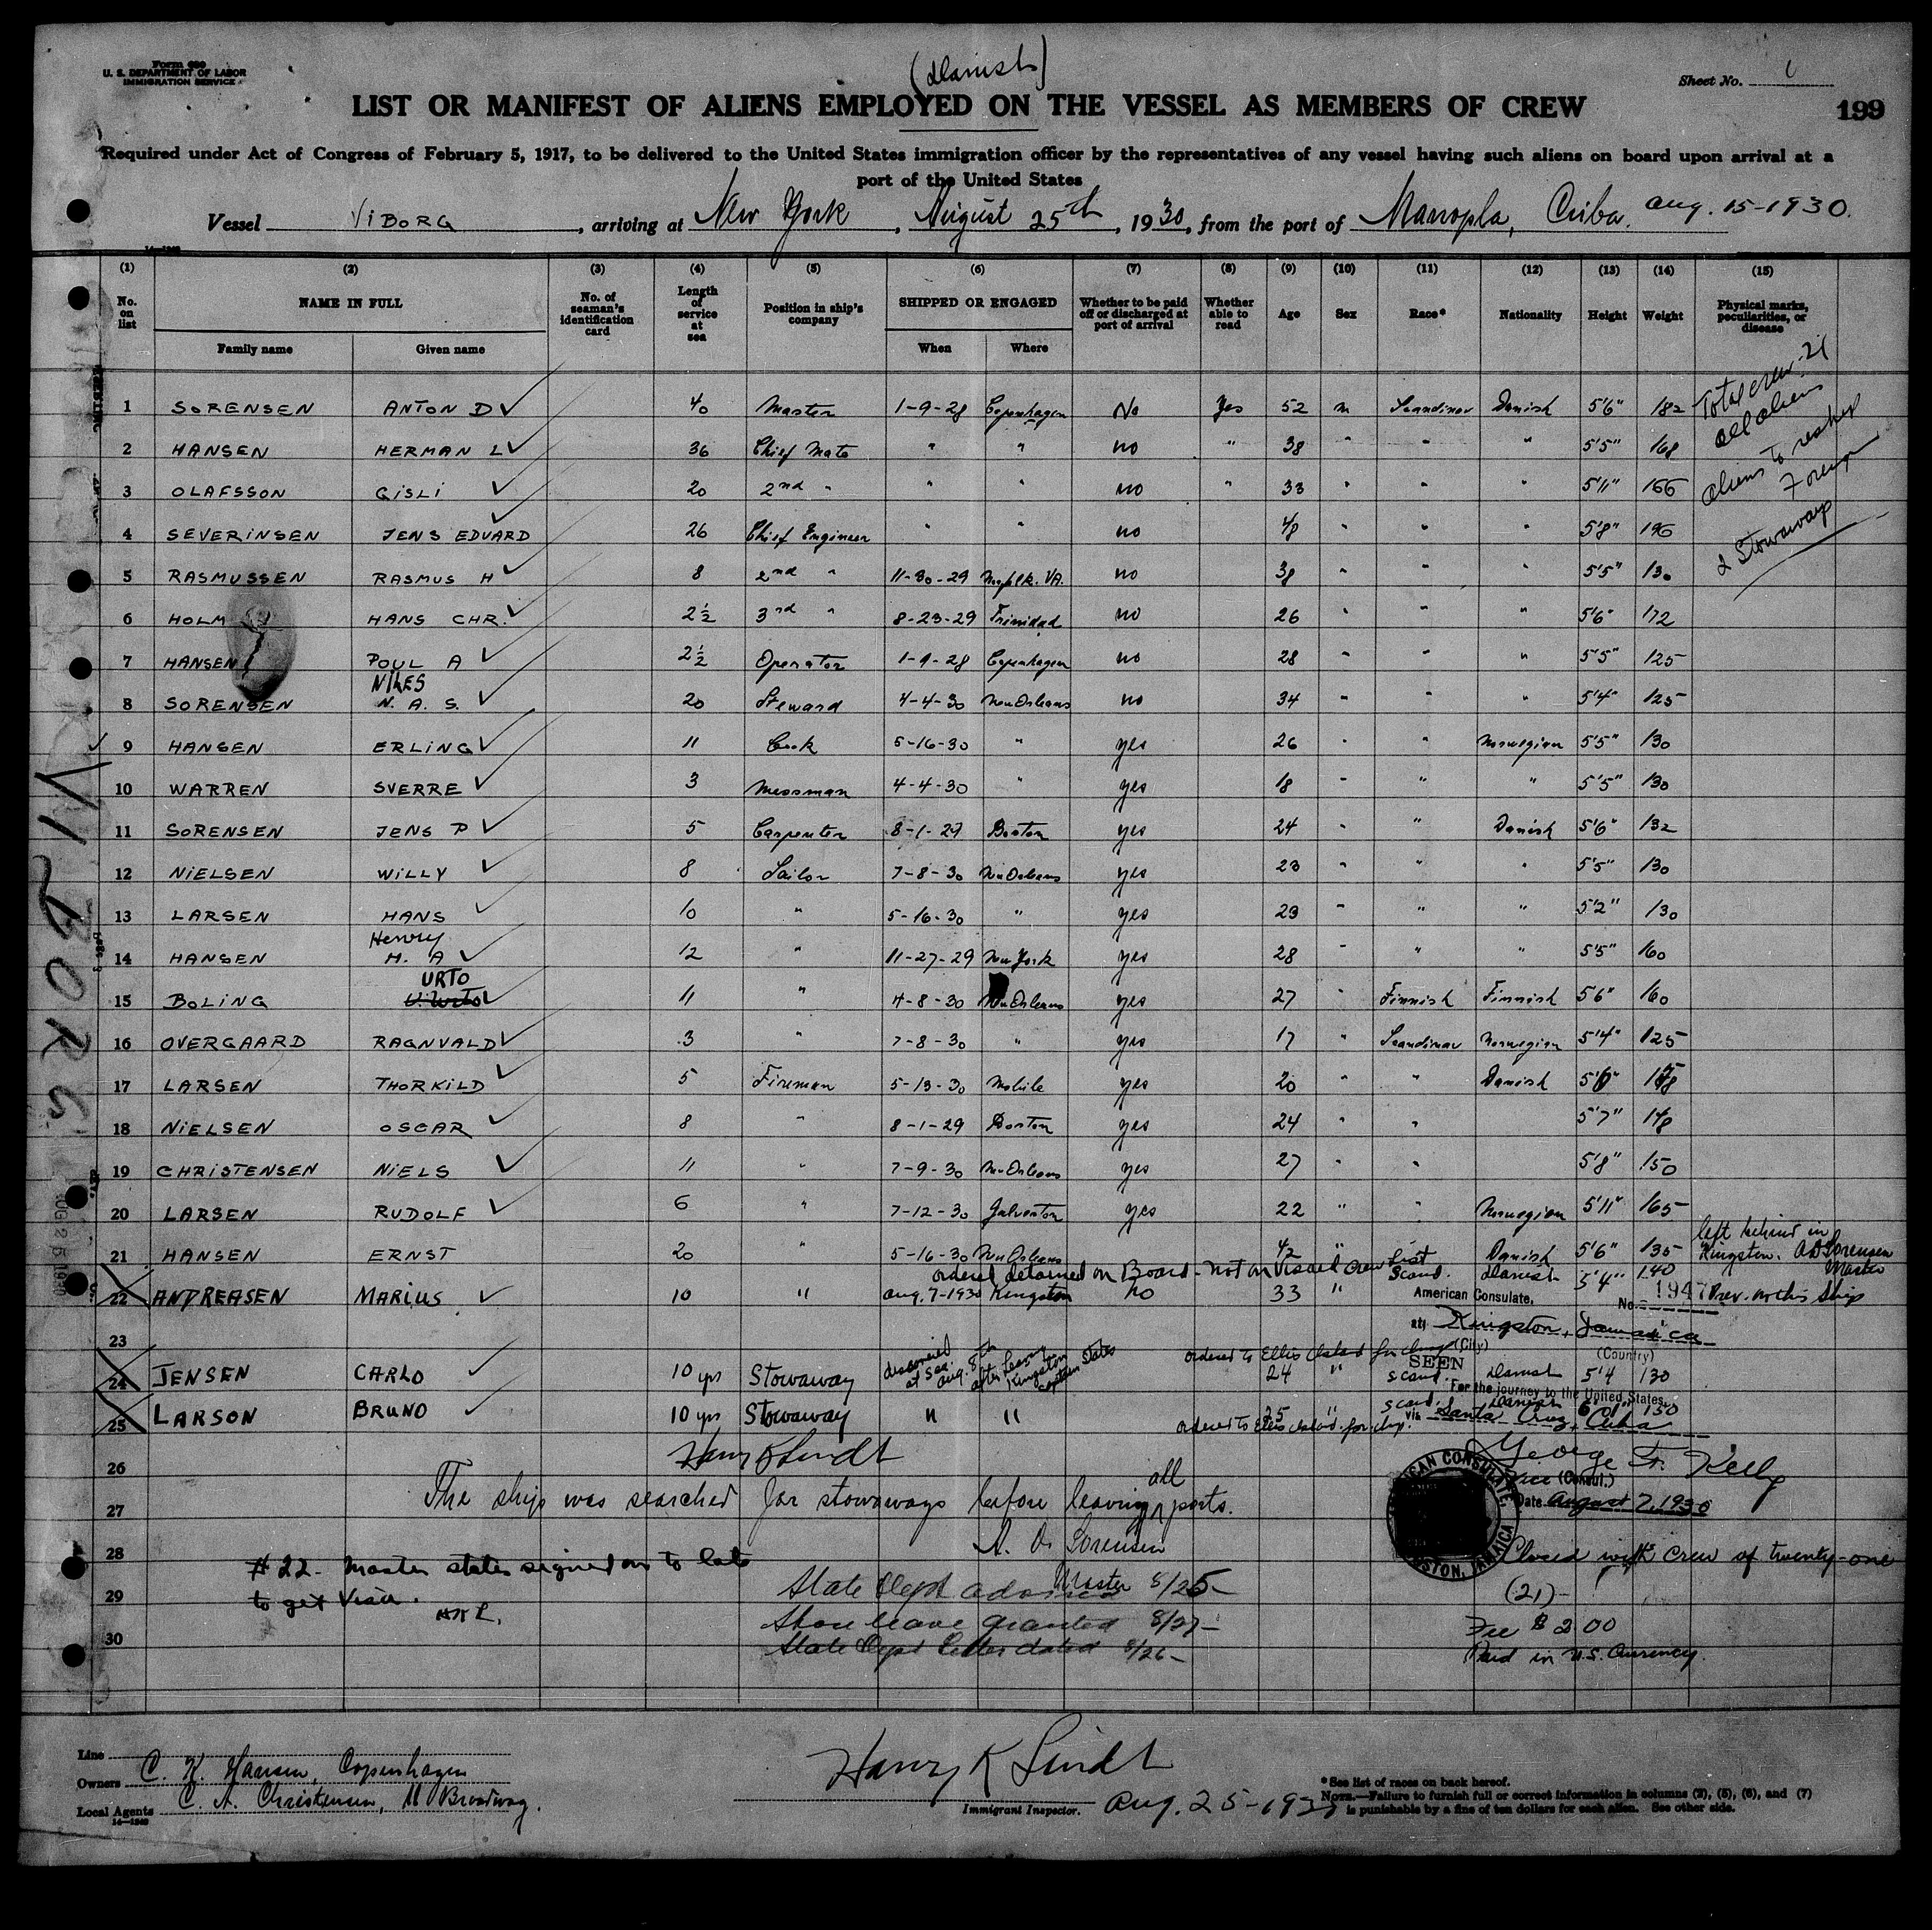 Form 680
U. S. DEPARTMENT OF LABOR
IMMIGRATION SERVICE
(Danish)
Sheet No. 1
LIST OR MANIFEST OF ALIENS EMPLOYED ON THE VESSEL AS MEMBERS OF CREW
199
Required under Act of Congress of February 5, 1917, to be delivered to the United States immigration officer by the representatives of any vessel having such aliens on board upon arrival at a
port of the United States
Vessel VIBORG, arriving at New York, August 25th, 1930, from the port of Manopla, Cuba. Aug. 15-1930.
(1) (2) (3) (4) (5) (6) (7) (8) (9) (10) (11) (12) (13) (14) (15)
No. on list NAME IN FULL No. of seaman's identification card Length of service at sea Position in ship's company SHIPPED OR ENGAGED Whether to be paid off or discharged at port of arrival Whether able to read Age Sex Race* Nationality Height Weight Physical marks, peculiarities, or disease
Family name Given name When Where
Total crew-21
all aliens
aliens to reship
Foreign
2 Stowaways
1 SORENSEN ANTON D 40 Master 1-9-28 Copenhagen No Yes 52 m Scandinav Danish 5'6" 182
2 HANSEN HERMAN L 36 Chief Mate " " no " 38 " " " 5'5" 168
3 OLAFSSON GISLI 20 2nd " " " no " 33 " " " 5'11" 166
4 SEVERINSEN JENS EDVARD 26 Chief Engineer " " no 48 " " " 5'8" 196
5 RASMUSSEN RASMUS H 8 2nd " 11-30-29 Norfolk. VA. no 38 " " " 5'5" 130
6 HOLM HANS CHR. 2½ 3rd " 8-23-29 Trinidad no 26 " " " 5'6" 172
7 HANSEN POUL A 2½ Operator 1-9-28 Copenhagen no 28 " " " 5'5" 125
NILES
8 SORENSEN N. A. S. 20 Steward 4-4-30 New Orleans no 34 " " " 5'4" 125
9 HANSEN ERLING 11 Cook 5-16-30 " yes 26 " " Norwegian 5'5" 130
10 WARREN SVERRE 3 Messman 4-4-30 " yes 18 " " " 5'5" 130
11 SORENSEN JENS P 5 Carpenter 8-1-29 Boston yes 24 " " Danish 5'6" 132
12 NIELSEN WILLY 8 Sailor 7-8-30 New Orleans yes 23 " " " 5'5" 130
13 LARSEN HANS 10 " 5-16-30 " yes 29 " " " 5'2" 130
Henry
14 HANSEN H. A 12 " 11-27-29 New York yes 28 " " " 5'5" 160
URTO
15 BOLING U. Urto 11 " 4-8-30 New Orleans yes 27 " Finnish Finnish 5'6" 160
16 OVERGAARD RAGNVALD 3 " 7-8-30 " yes 17 " Scandinav Norwegian 5'4" 125
17 LARSEN THORKILD 5 Fireman 5-13-30 Mobile yes 20 " " Danish
18 NIELSEN OSCAR 8 " 8-1-29 Boston yes 24 " " 5'7" 148
19 CHRISTENSEN NIELS 11 " 7-9-30 New Orleans yes 27 " " 5'8" 150
20 LARSEN RUDOLF 6 " 7-12-30 Galveston yes 22 " " Norwegian 5'11" 165
21 HANSEN ERNST 20 " 5-16-30 New Orleans 42 " Danish 5'6" 135 left behind in Kingston. AD Sorensen Master
ordered detained on Board - not on Visaed Crew List
22 ANDREASEN MARIUS 10 " Aug. 7-1930 Kingston no 33 " Scand. Danish 5'4" 140 Prev. on this Ship
American Consulate,
No. 1947
23
at Kingston, Jamaica
(City) (Country)
ordered to Ellis Island for Insp
SEEN
24 JENSEN CARLO 10 yrs Stowaway discovered at sea Aug. 8th after leaving Kingston captain states 24 " Scand. Danish 5'4 130
For the journey to the United States,
25 LARSON BRUNO 10 yrs Stowaway " " 25 " Scand. Danish 150
ordered to Ellis Island for Insp.
via Santa Cruz, Cuba
Harry K Lindt
George F. Kelly
Vice (Consul.)
26
all
The ship was searched for stowaways before leaving ports.
27
Date August 7, 1930
AMERICAN CONSULATE, KINGSTON, JAMAICA
A. D. Sorensen
Master
28
Closed with crew of twenty-one
(21)-
#22 - Master states signed on to late
to get Visa.
HKL.
State Dept advised 8/25-
29
Shore leave granted 8/27-
Fee $ 2.00
30
State Dept Letter dated 8/26-
Paid in U.S. Currency.
VIBORG
AUG 25 1930
Line
Owners C. K. Hansen, Copenhagen
Local Agents C. A. Christensen, 11 Broadway.
14-1240
Harry K Lindt
Immigrant Inspector. Aug. 25-1930
*See list of races on back hereof.
NOTE.—Failure to furnish full or correct information in columns (2), (5), (6), and (7)
is punishable by a fine of ten dollars for each alien. See other side.